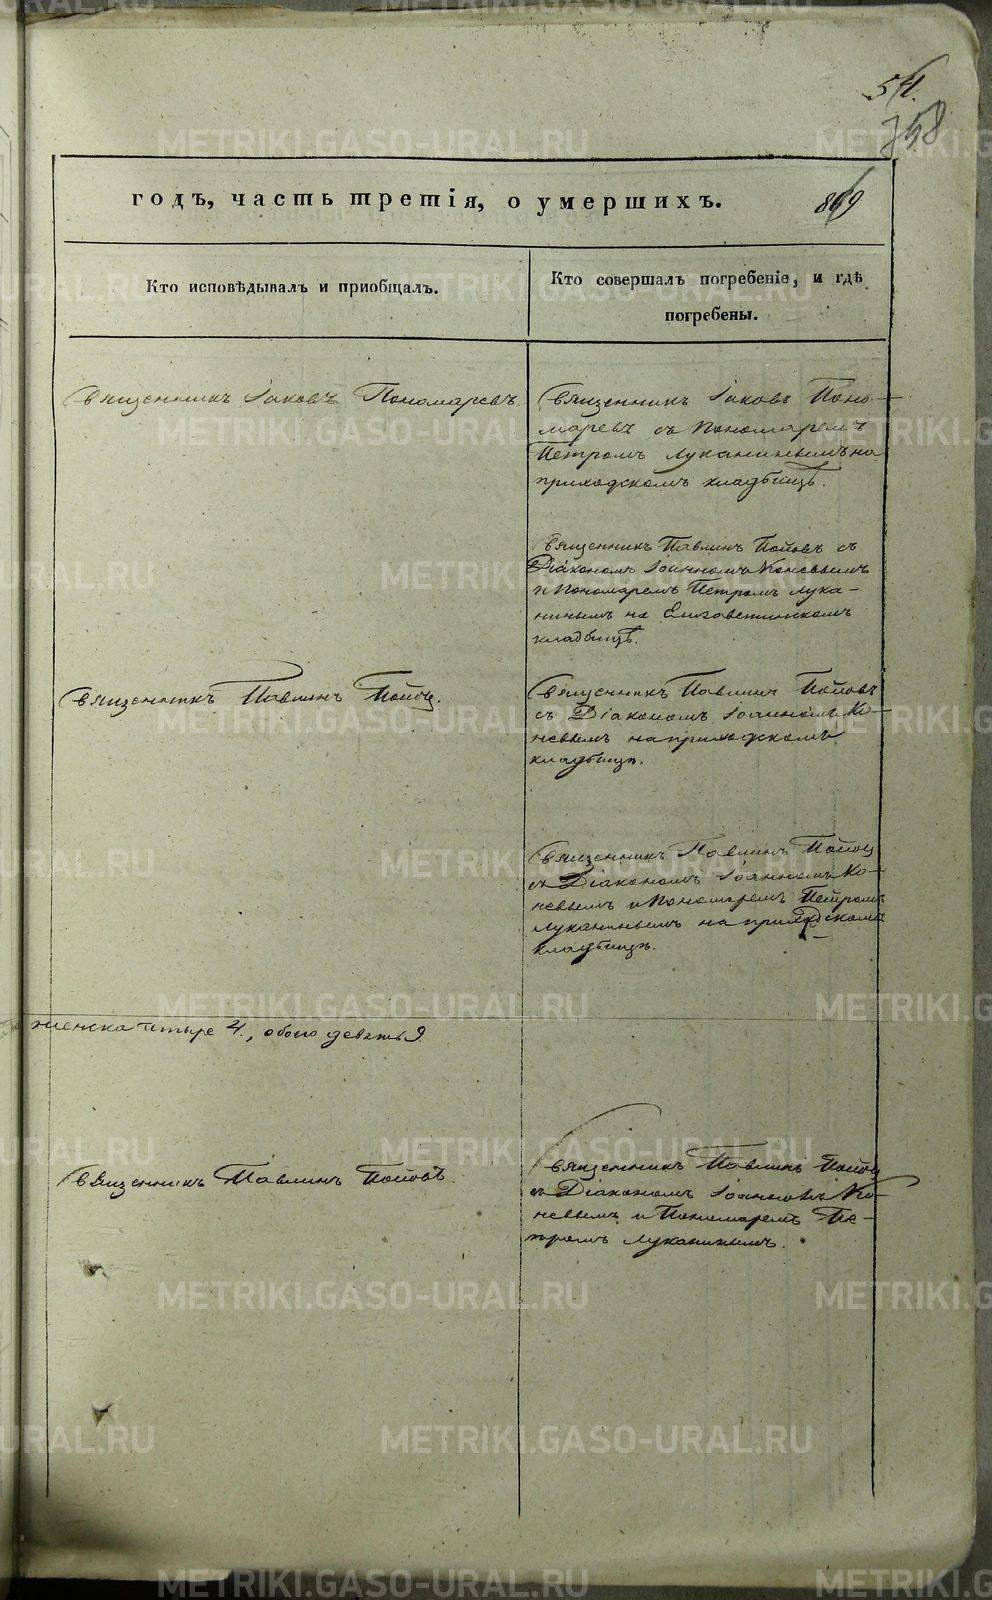 54.
758
годъ, часть третія, о умершихъ.
869
Кто исповѣдывалъ и приобщалъ.
Кто совершалъ погребеніе, и гдѣ
погребены.
Священникъ Іаковъ Пономаревъ.
Священникъ Іаковъ Поно-
маревъ съ Пономаремъ
Петромъ Луканинымъ на
приходскомъ кладбищѣ.
Священникъ Павлинъ Поповъ съ
Діакономъ Іоанномъ Коневымъ
и Пономаремъ Петромъ Лука-
нинымъ на Елисаветинскомъ
кладбищѣ.
Священникъ Павлинъ Поповъ.
Священникъ Павлинъ Поповъ
съ Діакономъ Іоанномъ Ко-
невымъ на приходскомъ
кладбищѣ.
Священникъ Павлинъ Поповъ
съ Діакономъ Іоанномъ Ко-
невымъ и Пономаремъ Петромъ
Луканинымъ на приходскомъ
кладбищѣ.
женска четыре 4., обоего девять 9.
Священникъ Павлинъ Поповъ.
Священникъ Павлинъ Поповъ
съ Діакономъ Іоанномъ Ко-
невымъ и Пономаремъ Пе-
тромъ Луканинымъ.
METRIKI.GASO-URAL.RU